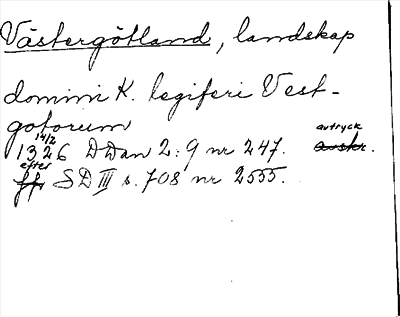 Västergötland, landskap
domini K. legiferi Vest-
gotorum
14/2
1326 DDan 2:9 nr 247. avtryck
efter SD III s. 708 nr 2555.